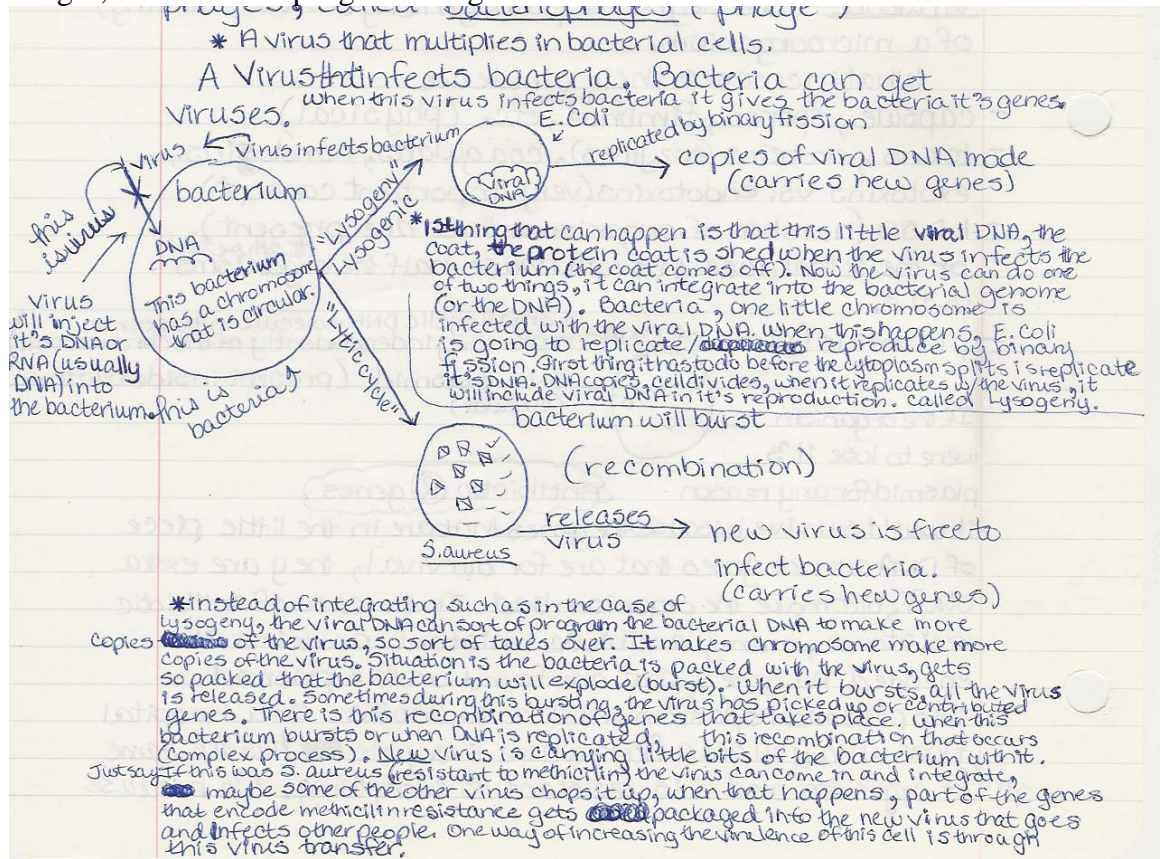 phages, called bacteriophages (phage)
* A virus that multiplies in bacterial cells.
A Virus that infects bacteria. Bacteria can get
viruses.
when this virus infects bacteria it gives the bacteria it's genes.
E. Coli
virus
virus infects bacterium
replicated by binary fission
copies of viral DNA made
(carries new genes)
viral
DNA
bacterium
"Lysogeny"
Lysogenic
this
is virus
DNA
This bacterium
has a chromosome
that is circular.
virus
will inject
it's DNA or
RNA (usually
DNA) into
the bacterium.
This is
bacteria
"Lytic cycle"
*1st thing that can happen is that this little viral DNA, the
coat, the protein coat is shed when the virus infects the
bacterium (the coat comes off). Now the virus can do one
of two things, it can integrate into the bacterial genome
(or the DNA). Bacteria, one little chromosome is
infected with the viral DNA. When this happens, E. coli
is going to replicate/ reproduce by binary
fission. First thing it has to do before the cytoplasm splits is replicate
it's DNA. DNA copies, cell divides, when it replicates w/the virus, it
will include viral DNA in it's reproduction. called Lysogeny.
bacterium will burst
(recombination)
S. aureus
releases
virus
new virus is free to
infect bacteria.
(carries new genes)
*instead of integrating such as in the case of
lysogeny, the viral DNA can sort of program the bacterial DNA to make more
copies of the virus, so sort of takes over. It makes chromosome make more
copies of the virus. Situation is the bacteria is packed with the virus, gets
so packed that the bacterium will explode (burst). When it bursts, all the virus
is released. Sometimes during this bursting, the virus has picked up or contributed
genes. There is this recombination of genes that takes place. when this
bacterium bursts or when DNA is replicated, this recombination that occurs
(complex process). New virus is carrying little bits of the bacterium with it.
Just say If this was S. aureus (resistant to methicilin) the virus can come in and integrate,
maybe some of the other virus chops it up, when that happens, part of the genes
that encode methicilin resistance gets packaged into the new virus that goes
and infects other people. One way of increasing the virulence of this cell is through
this virus transfer.